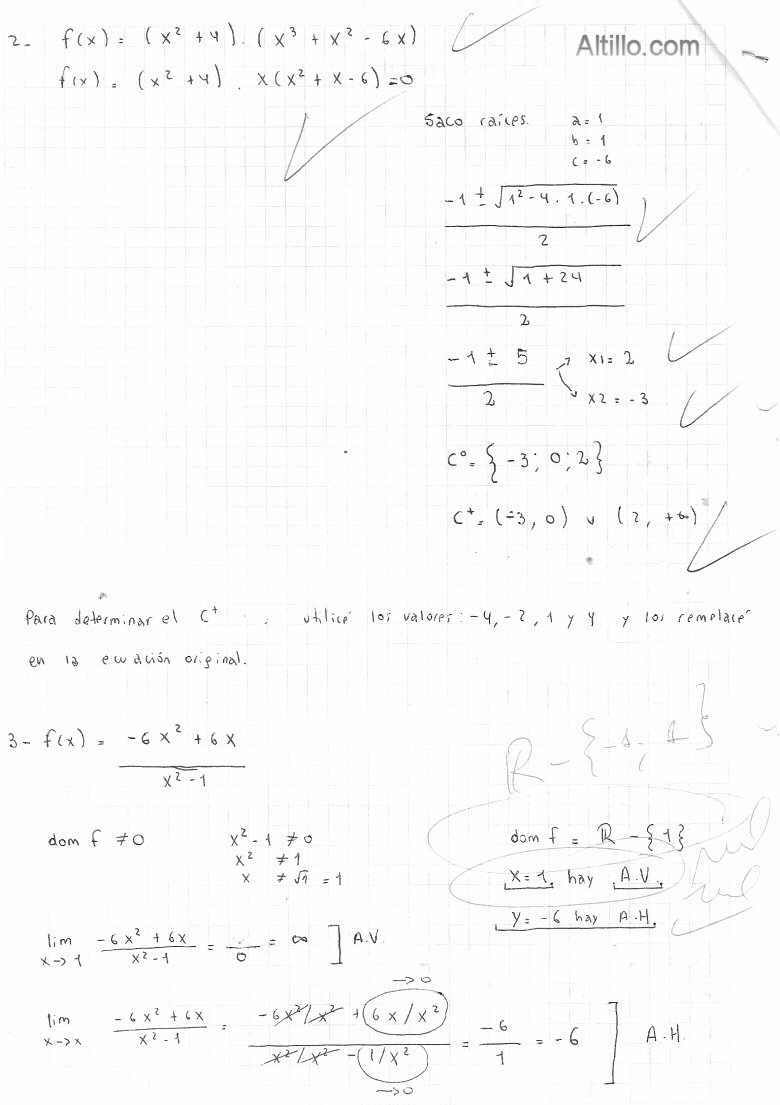 Altillo.com
2- f(x) = (x² + 4) . (x³ + x² - 6x)
f(x) = (x² + 4) . x(x² + x - 6) = 0
Saco raíces. a = 1
b = 1
c = -6
-1 ± √(1² - 4 . 1 . (-6)) / 2
-1 ± √(1 + 24) / 2
-1 ± 5 / 2 → x1 = 2
→ x2 = -3
C⁰ = {-3; 0; 2}
C⁺ = (-3, 0) ∪ (2, +∞)
Para determinar el C⁺ : utilicé los valores: -4, -2, 1 y 4 y los remplacé
en la ecuación original.
3- f(x) = (-6x² + 6x) / (x² - 1)
ℝ - {-1; 1}
dom f ≠ 0 x² - 1 ≠ 0 dom f = ℝ - {1}
x² ≠ 1
x ≠ √1 = 1 x = 1, hay A.V. mal
mal
y = -6 hay A.H.
lim x→1 (-6x² + 6x) / (x² - 1) = ÷/0 = ∞ ] A.V.
lim x→x (-6x² + 6x) / (x² - 1) = (-6x²/x² + 6x/x²) / (x²/x² - 1/x²) = -6/1 = -6 ] A.H.
→0
→0